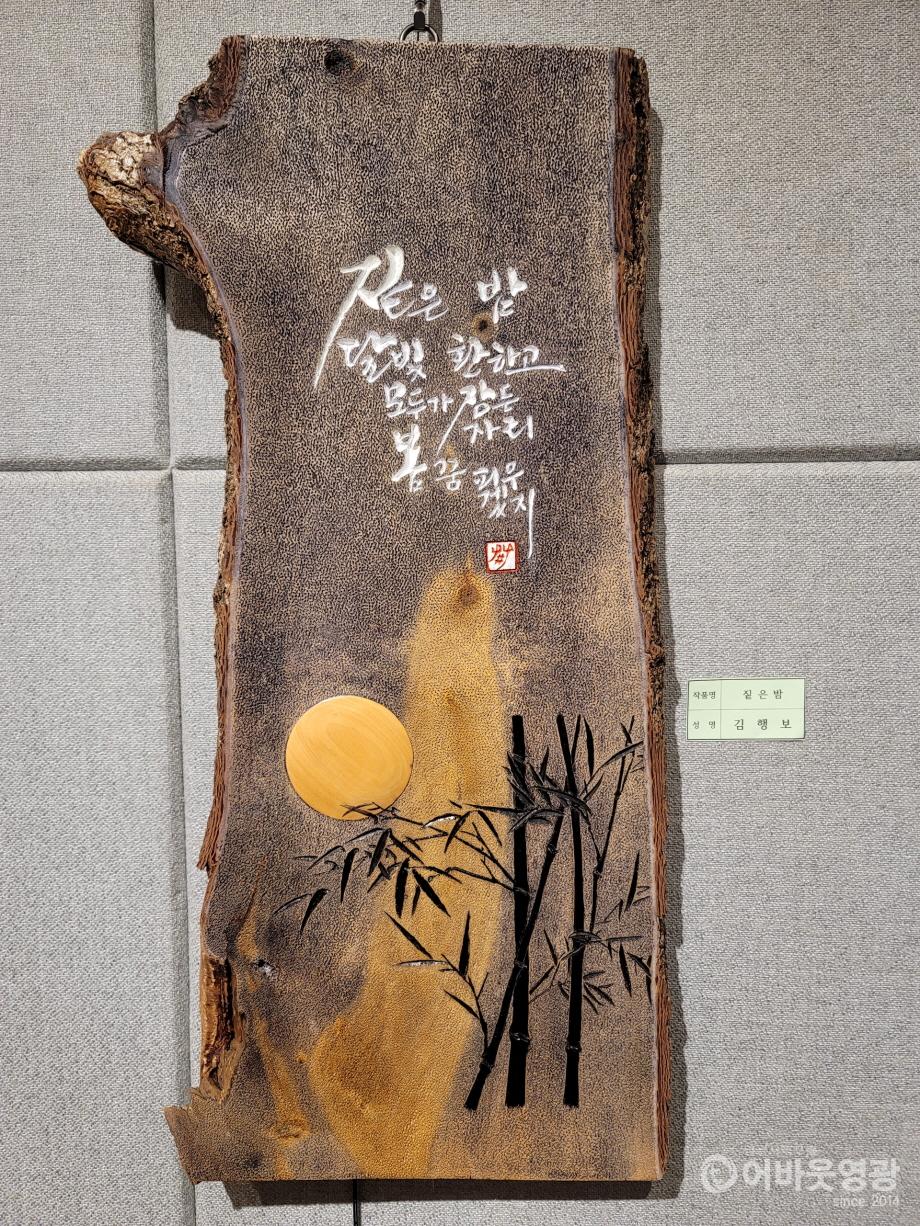 짙은 밤
달빛 환하고
모두가 잠든
자리
봄 꿈 피우
겠지
작품명 짙은밤
성 명 김 행 보
어바웃영광
since 2014